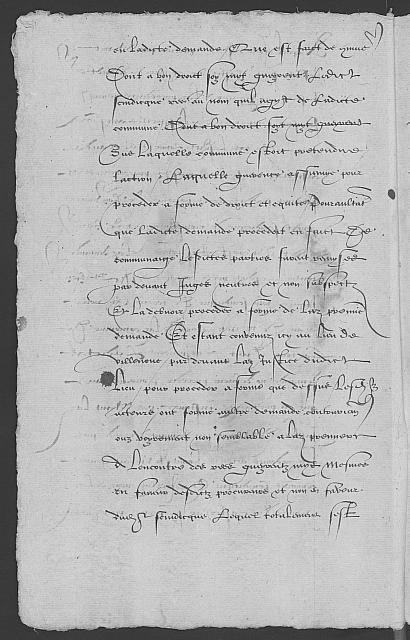 en ladicte demande Que est faict de
Dont a bon droict soy garent Ledict
scindicque au nom quil agyt de Ladicte
commune Dont a bon droict soyt garent
Que Laquelle commune estoit pretendre
laction Laquelle garence assumye pour
proceder a forme de droict et equite Pour aultant
que ladicte demande procedoit en faict De
communange Lesdictes parties furent remyses
par devant Juges neutres et non suspectz
Et La dehors proceder a forme de Lad premiere
demande Et estant convenuz icy au lieu de
Villeneuve par devant La Justice dudict
Lieu pour proceder a forme que dessus Lesd
acteurs ont forme aultre demande contraire
ou vrayement non semblable a Lad premiere
A Lencontre des garentz mesmes
en faveur desditz procureurs et non en faveur
dud scindicque Lequel totalement sest